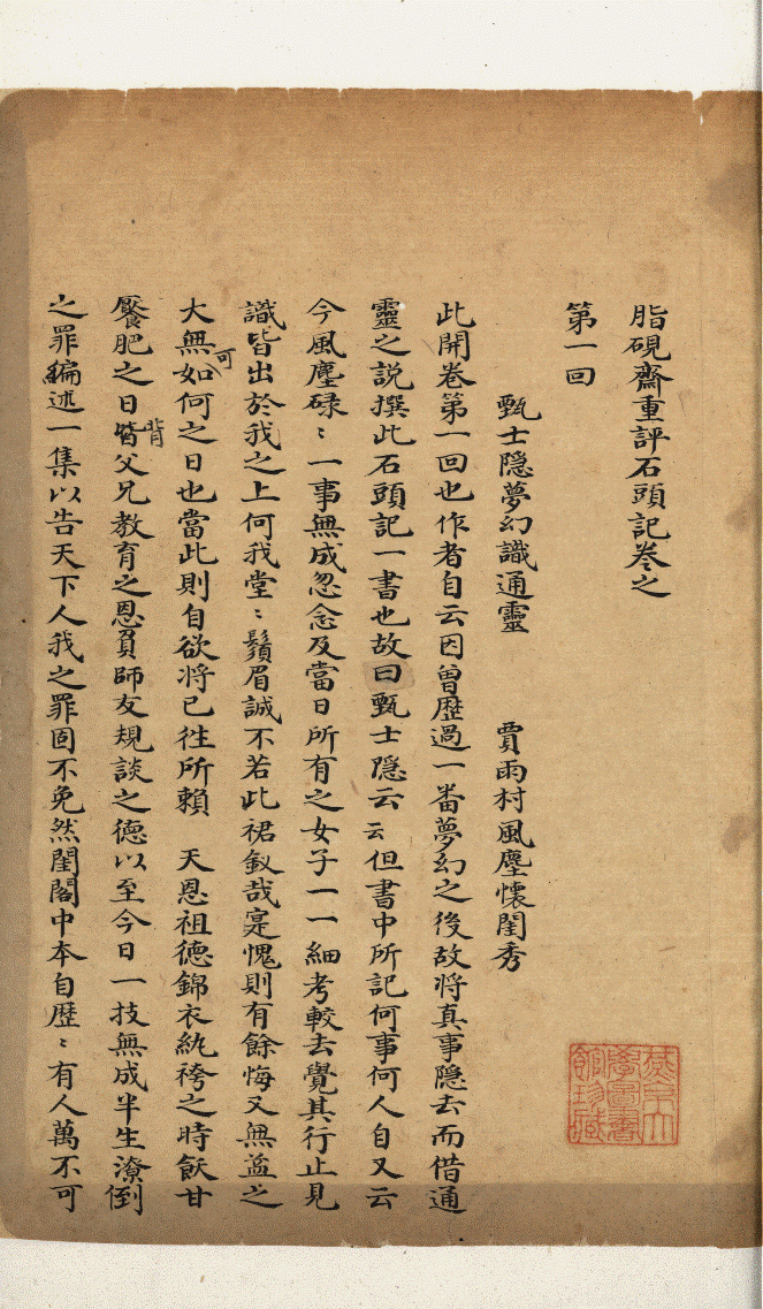 脂硯齋重評石頭記卷之
第一回
甄士隐夢幻識通靈　賈雨村風塵懷閨秀
此開卷第一回也作者自云因曾歷過一番夢幻之後故將真事隐去而借通
靈之説撰此石頭記一書也故曰甄士隐云云但書中所記何事何人自又云
今風塵碌〻一事無成忽念及當日所有之女子一一細考較去覺其行止見
識皆出於我之上何我堂〻鬚眉誠不若此裙釵哉寔愧則有餘悔又無益之
大無可如何之日也當此則自欲將已徃所賴　天恩祖德錦衣紈袴之時飫甘
饜肥之日背父兄教育之恩負師友規談之德以至今日一技無成半生潦倒
之罪編述一集以告天下人我之罪固不免然閨閣中本自歷〻有人萬不可
燕京大學圖書館珍藏